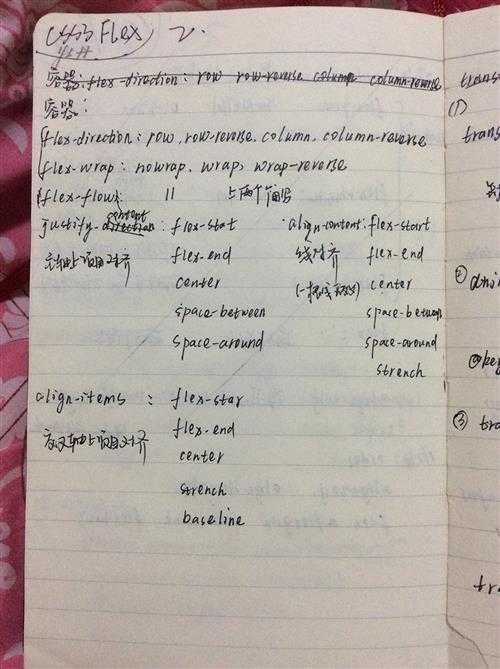 css3 Flex 2.
容器: flex-direction: row row-reverse column column-reverse
容器:
flex-direction: row, row-reverse, column, column-reverse
flex-wrap: nowrap, wrap, wrap-reverse
flex-flow: 11 上两个简写
justify-content direction: flex-stat
主轴上项目对齐 flex-end
center
space-between
space-around
align-content: flex-start
线对齐 flex-end
center
space-between
space-around
strench
align-items: flex-star
交叉轴上项目对齐 flex-end
center
strench
baseline
trans
(1)
trans
②
③ tra